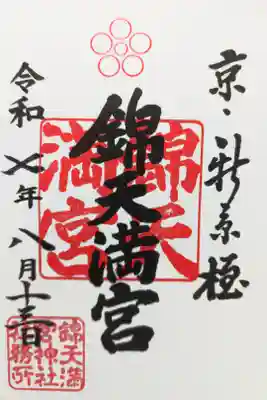 京・新京極
錦天満宮
錦天
満宮
令和七年八月十三日
錦天満
宮神社
社務所